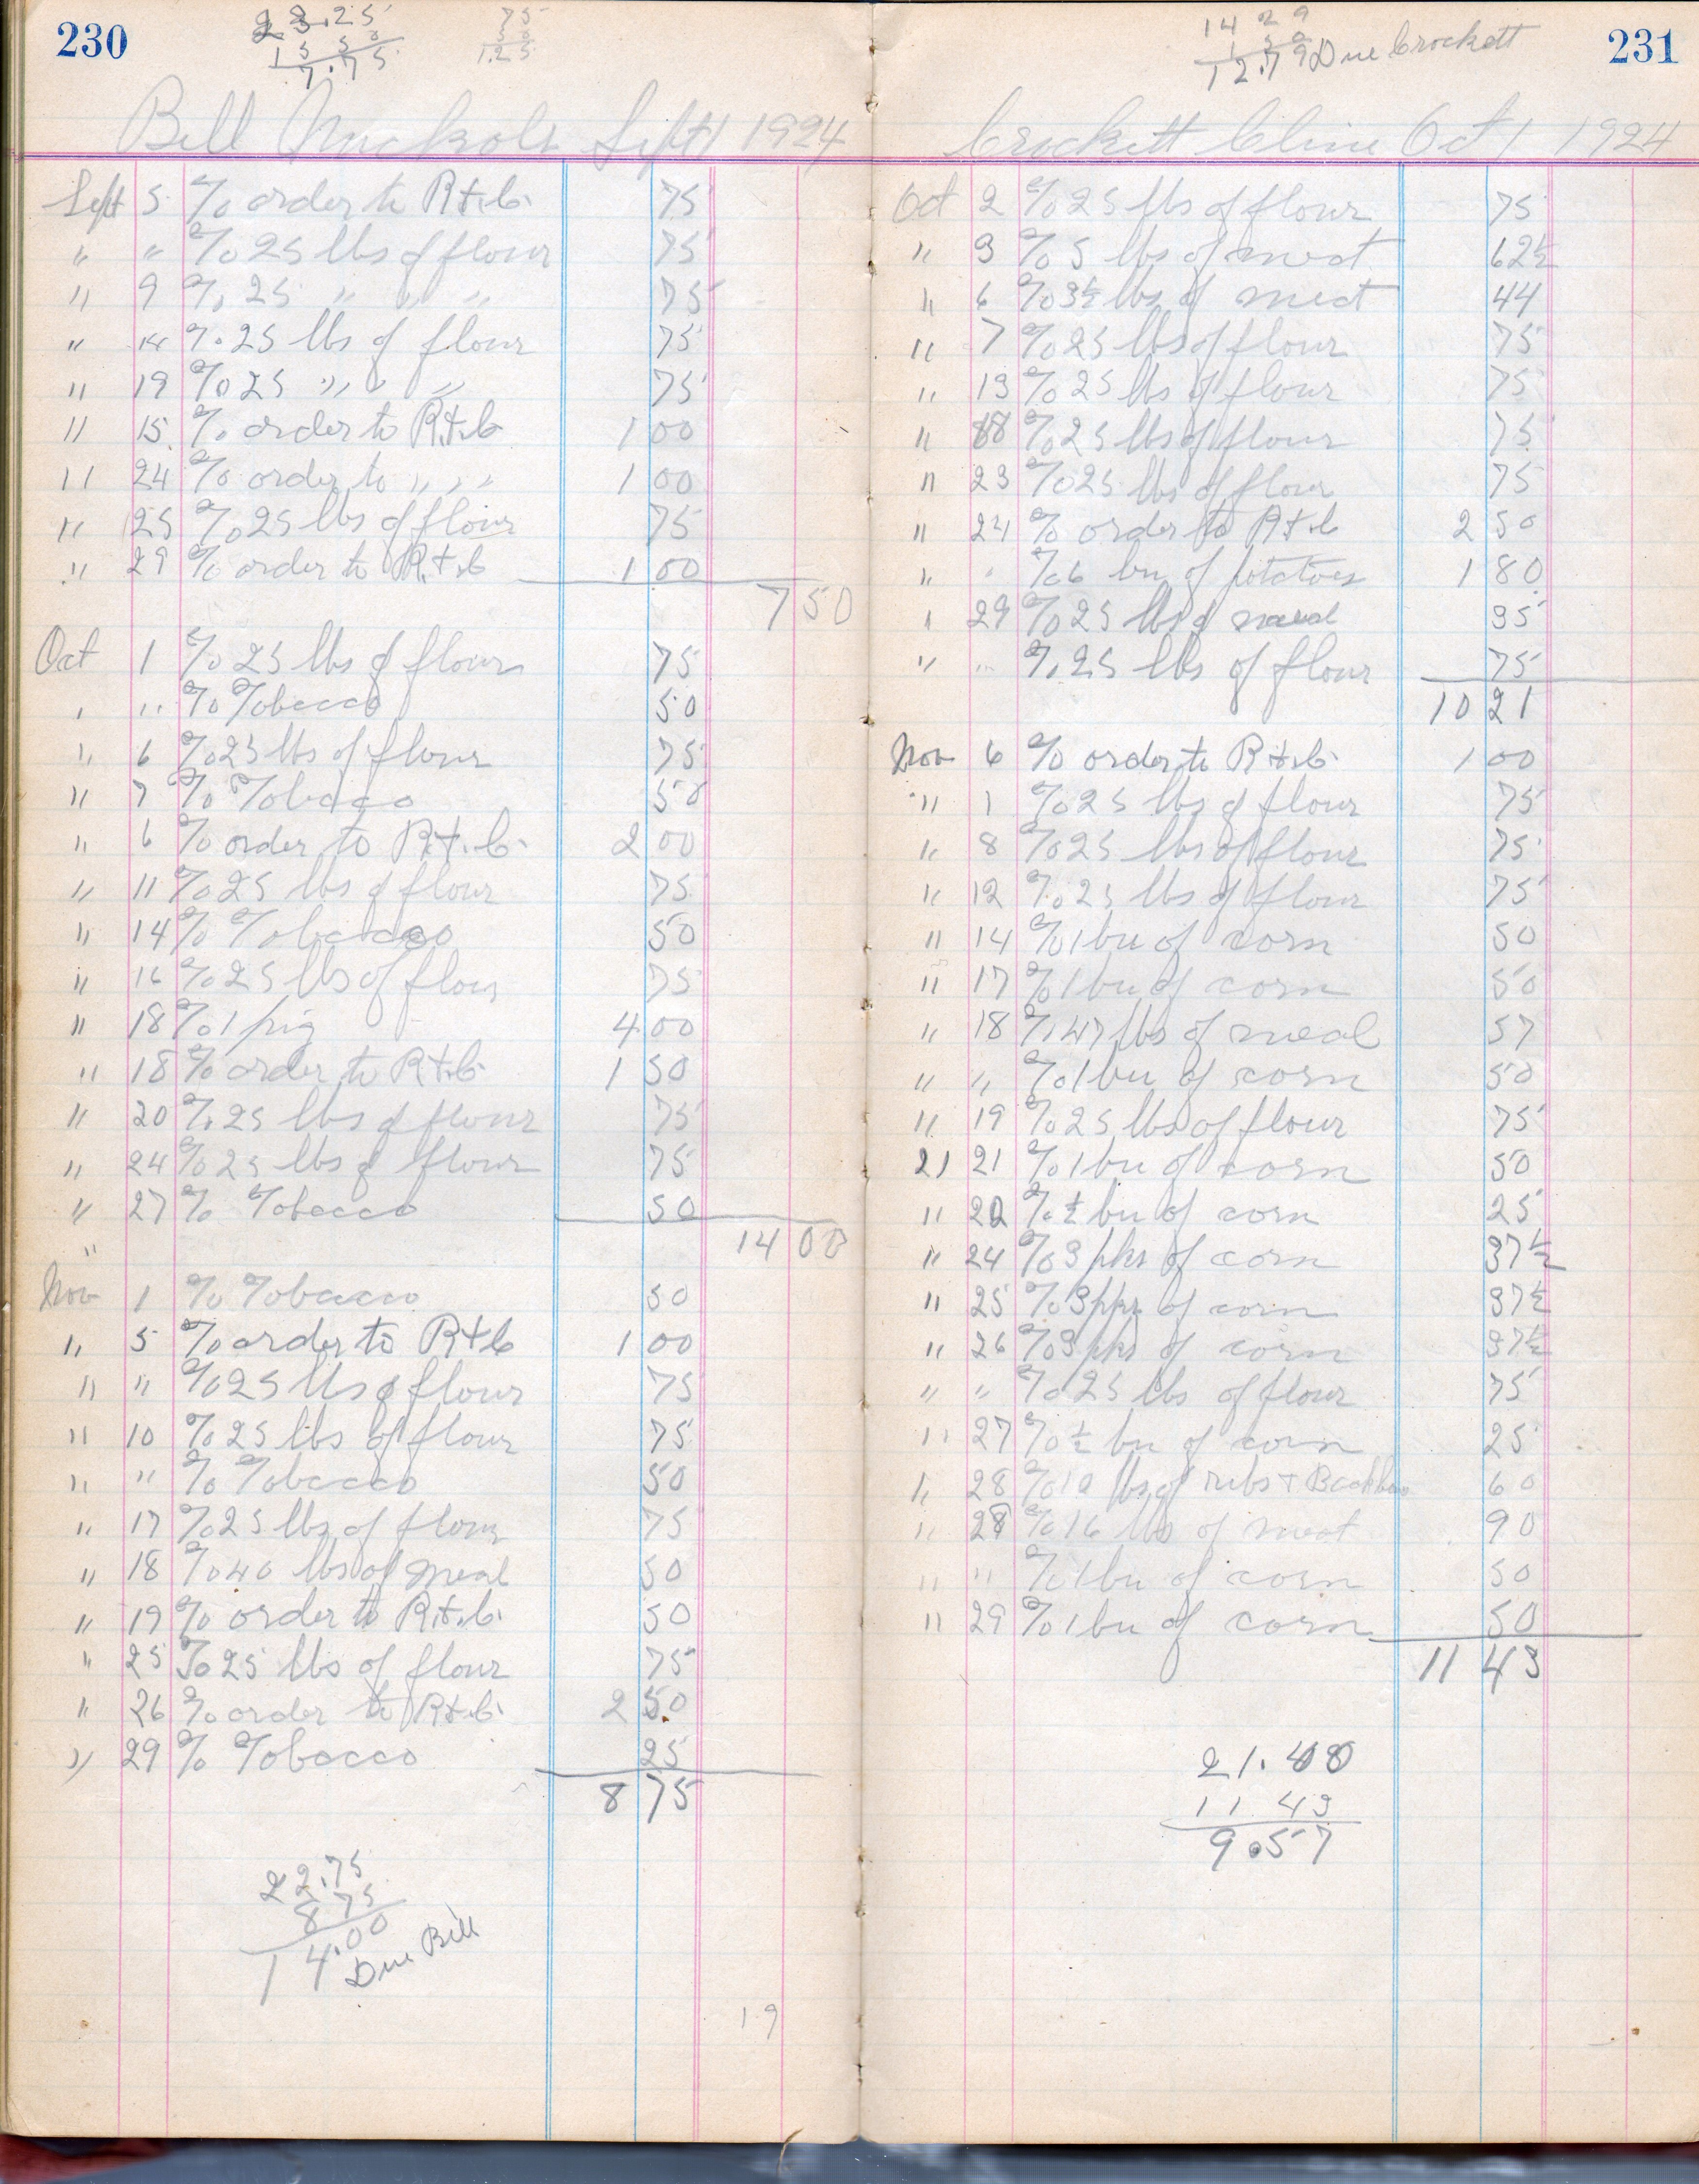 230
23.25
15 50
7.75
75
50
1.25
Bill Nuckols Sept 1 1924
Sept 5 % order to R+.C. 75
" " % 25 lbs of flour 75
" 9 % 25 " " " 75
" 14 % 25 lbs of flour 75
" 19 % 25 " " " 75
" 15 % order to R.+.C 1 00
" 24 % order to " " " 1 00
" 25 % 25 lbs of flour 75
" 29 % order to R.+.C 1 00
7 50
Oct 1 % 25 lbs of flour 75
" " % Tobacco 50
" 6 % 25 lbs of flour 75
" 7 % Tobacco 50
" 6 % order to R.+.C. 2 00
" 11 % 25 lbs of flour 75
" 14 % Tobacco 50
" 16 % 25 lbs of flour 75
" 18 % 1 pig 4 00
" 18 % order to R+.C. 1 50
" 20 % 25 lbs of flour 75
" 24 % 25 lbs of flour 75
" 27 % Tobacco 50
" 14 00
Nov 1 % Tobacco 50
" 5 % order to R+C 1 00
" " % 25 lbs of flour 75
" 10 % 25 lbs of flour 75
" " % Tobacco 50
" 17 % 25 lbs of flour 75
" 18 % 40 lbs of meal 50
" 19 % order to R.+.C. 50
" 25 % 25 lbs of flour 75
" 26 % order to R+.C. 2 50
" 29 % Tobacco 25
8 75
22.75
8 75
14.00
Due Bill
19
231
14 29
1 50
12.79 Due Crockett
Crockett Cline Oct 1 1924
Oct 2 % 25 lbs of flour 75
" 3 % 5 lbs of meat 62½
" 6 % 3½ lbs of meat 44
" 7 % 25 lbs of flour 75
" 13 % 25 lbs of flour 75
" 18 % 25 lbs of flour 75
" 23 % 25 lbs of flour 75
" 24 % order to R+.C 2 50
" " % 6 bu of potatoes 1 80
" 29 % 25 lbs of meal 35
" " % 25 lbs of flour 75
10 21
Nov 6 % order to R+.C. 1 00
" 1 % 25 lbs of flour 75
" 8 % 25 lbs of flour 75
" 12 % 25 lbs of flour 75
" 14 % 1 bu of corn 50
" 17 % 1 bu of corn 50
" 18 % 47 lbs of meal 57
" " % 1 bu of corn 50
" 19 % 25 lbs of flour 75
21 21 % 1 bu of corn 50
" 22 % ½ bu of corn 25
" 24 % 3 pks of corn 37½
" 25 % 3 pks of corn 37½
" 26 % 3 pks of corn 37½
" " % 25 lbs of flour 75
" 27 % ½ bu of corn 25
" 28 % 12 lbs of ribs + 60
" 28 % 16 lbs of meat 90
" " % 1 bu of corn 50
" 29 % 1 bu of corn 50
11 43
21.00
11 43
9.57